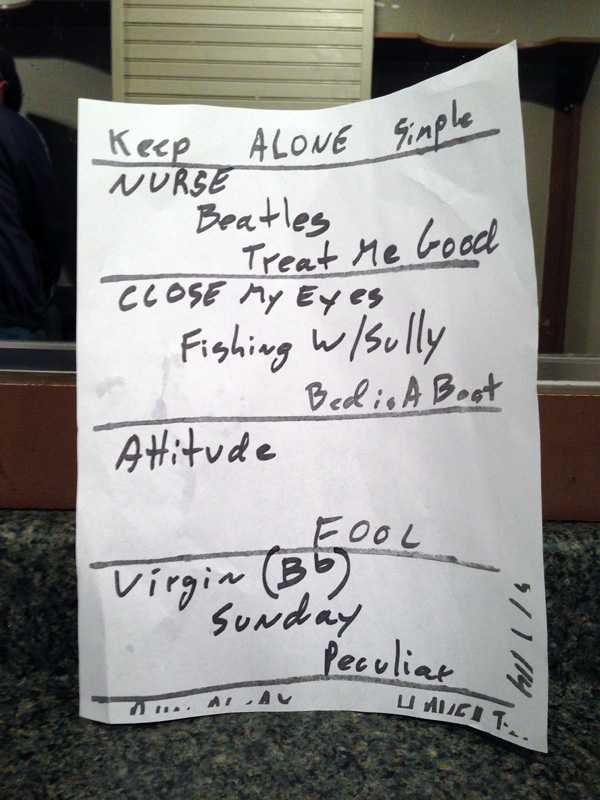 Keep ALONE Simple
NURSE
Beatles
Treat Me Good
CLOSE My Eyes
Fishing W/Sully
Bed is A Boat
Attitude
FOOL
Virgin (Bb)
Sunday
Peculiar